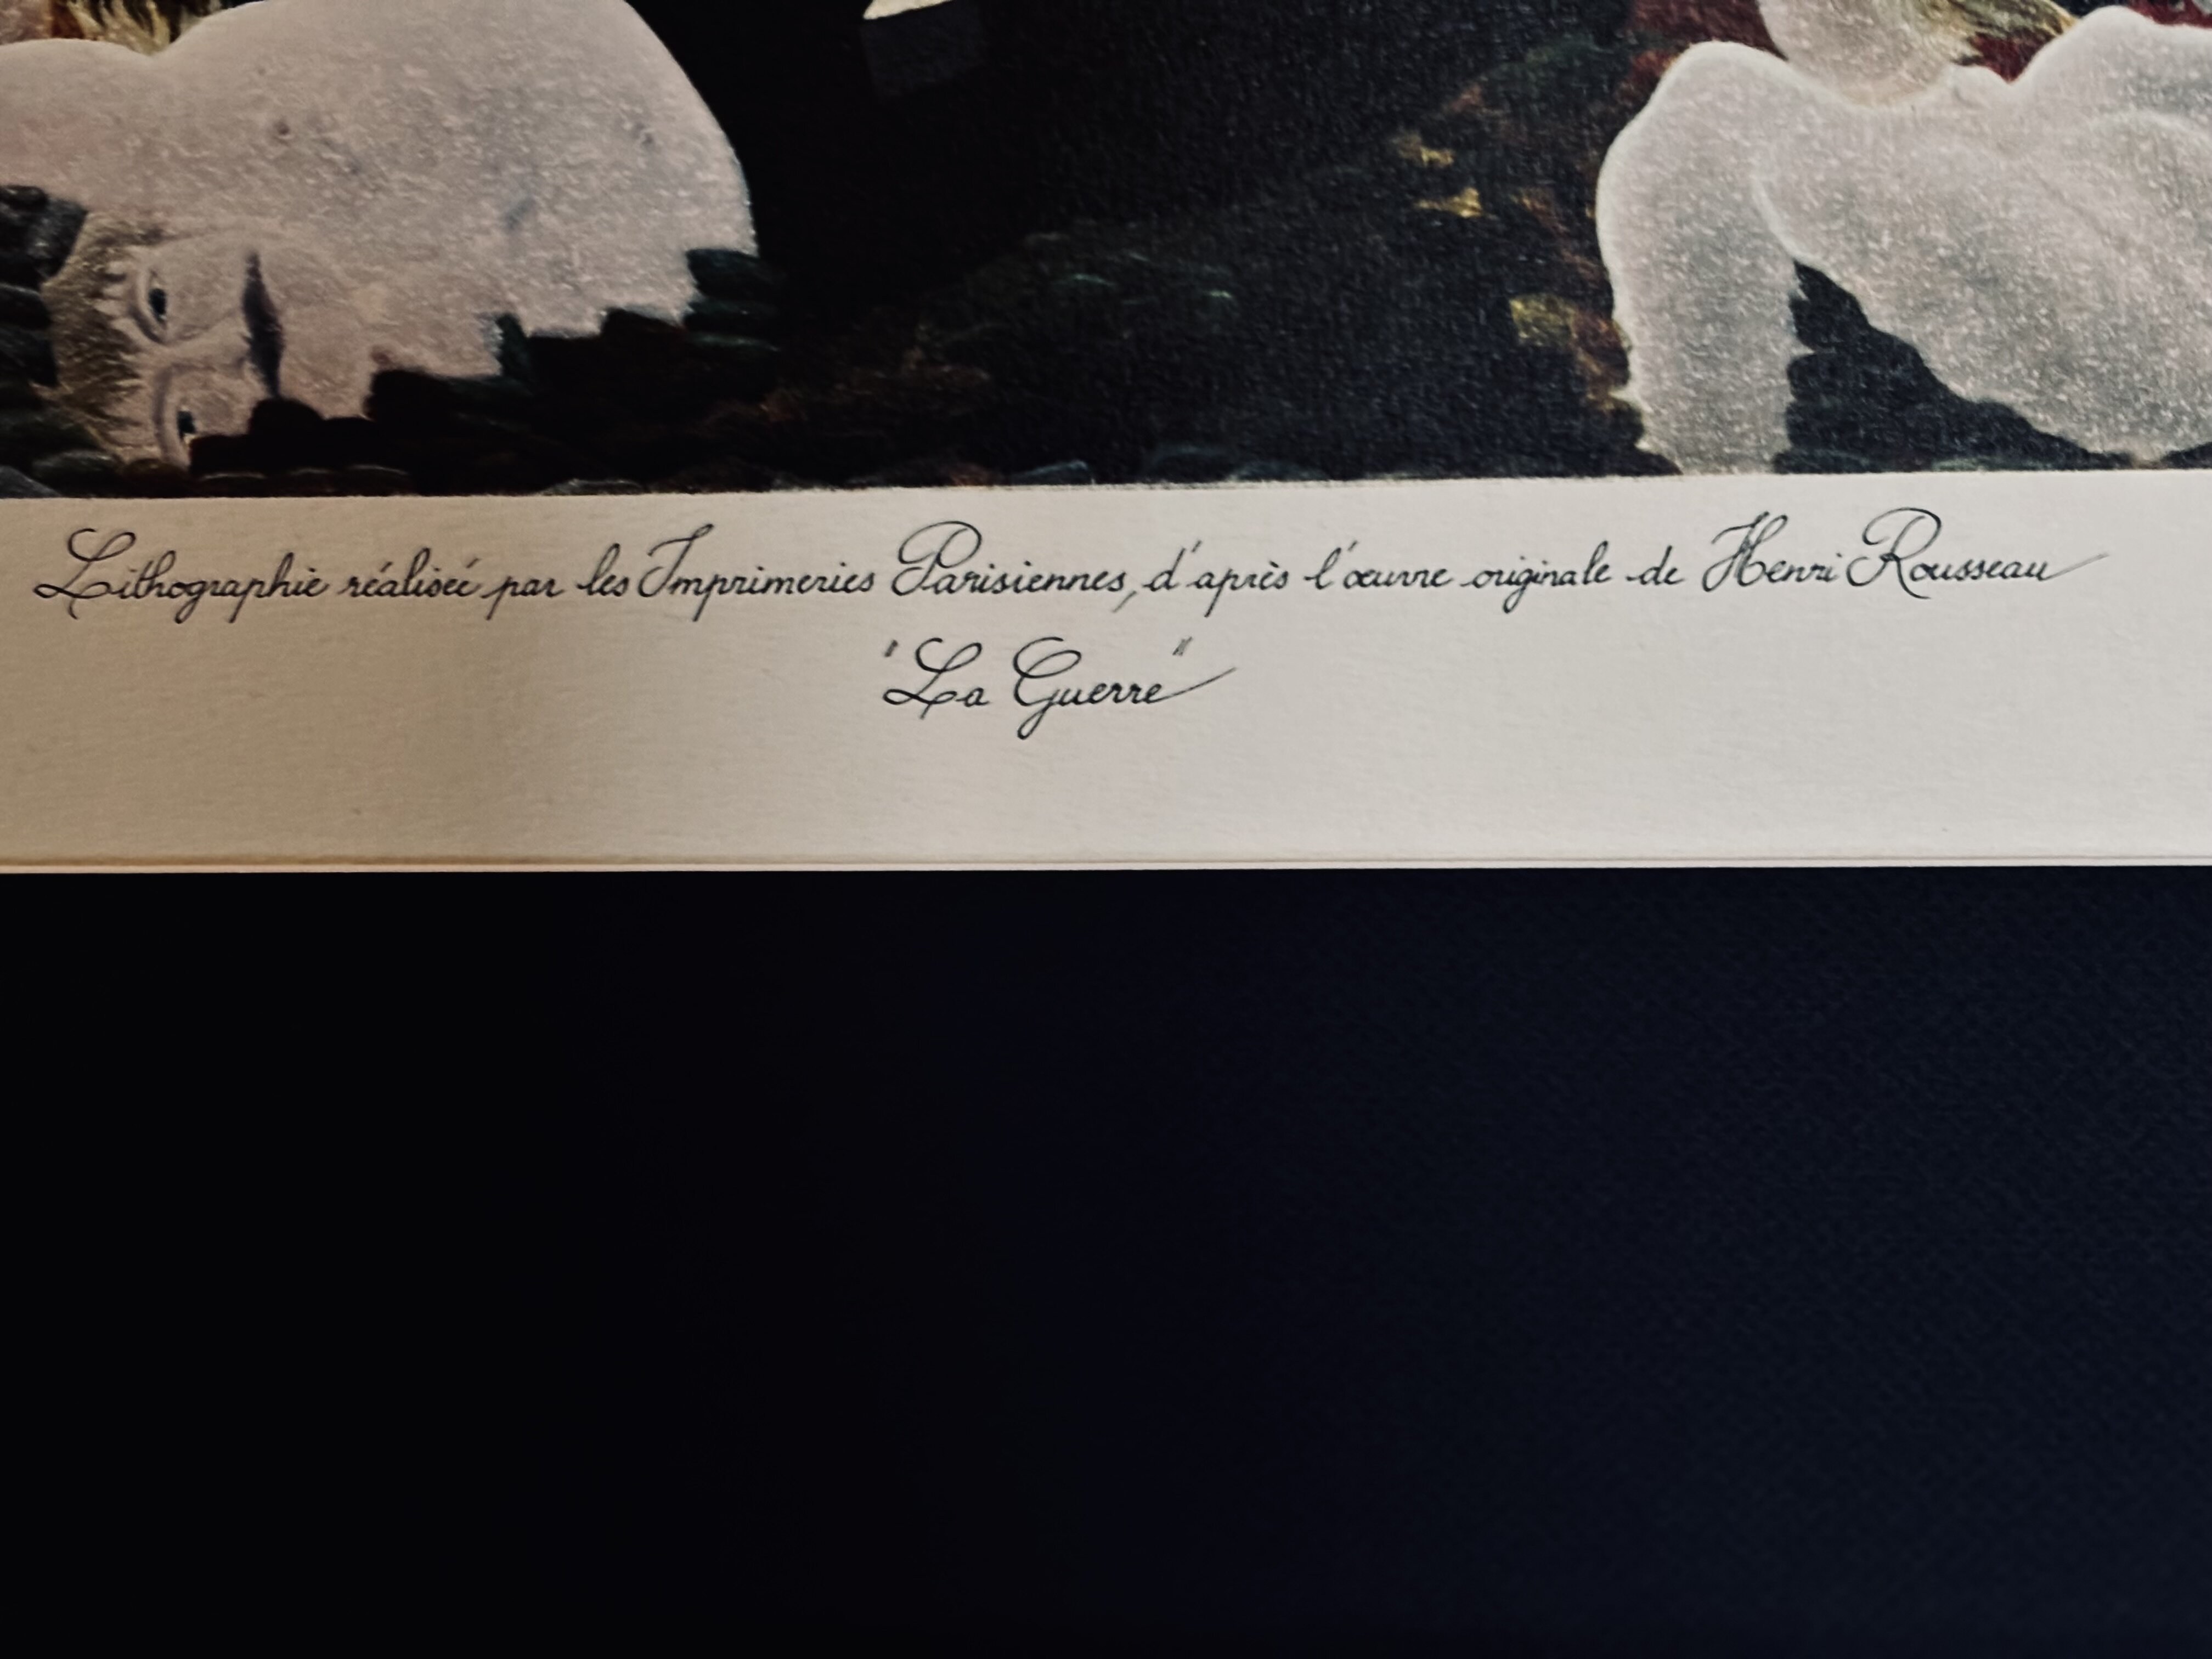 Lithographie réalisée par les Imprimeries Parisiennes, d'après l'œuvre originale de Henri Rousseau
"La Guerre"